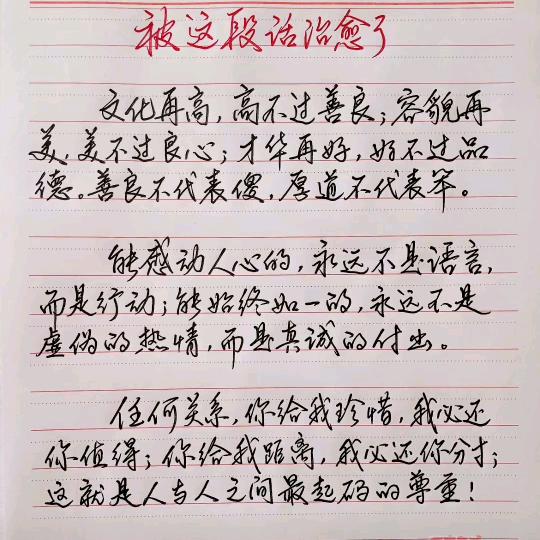 被这段话治愈了
文化再高,高不过善良;容貌再
美,美不过良心;才华再好,好不过品
德。善良不代表傻,厚道不代表笨。
能感动人心的,永远不是语言,
而是行动;能始终如一的,永远不是
虚伪的热情,而是真诚的付出。
任何关系,你给我珍惜,我必还
你值得;你给我距离,我必还你分寸;
这就是人与人之间最起码的尊重!